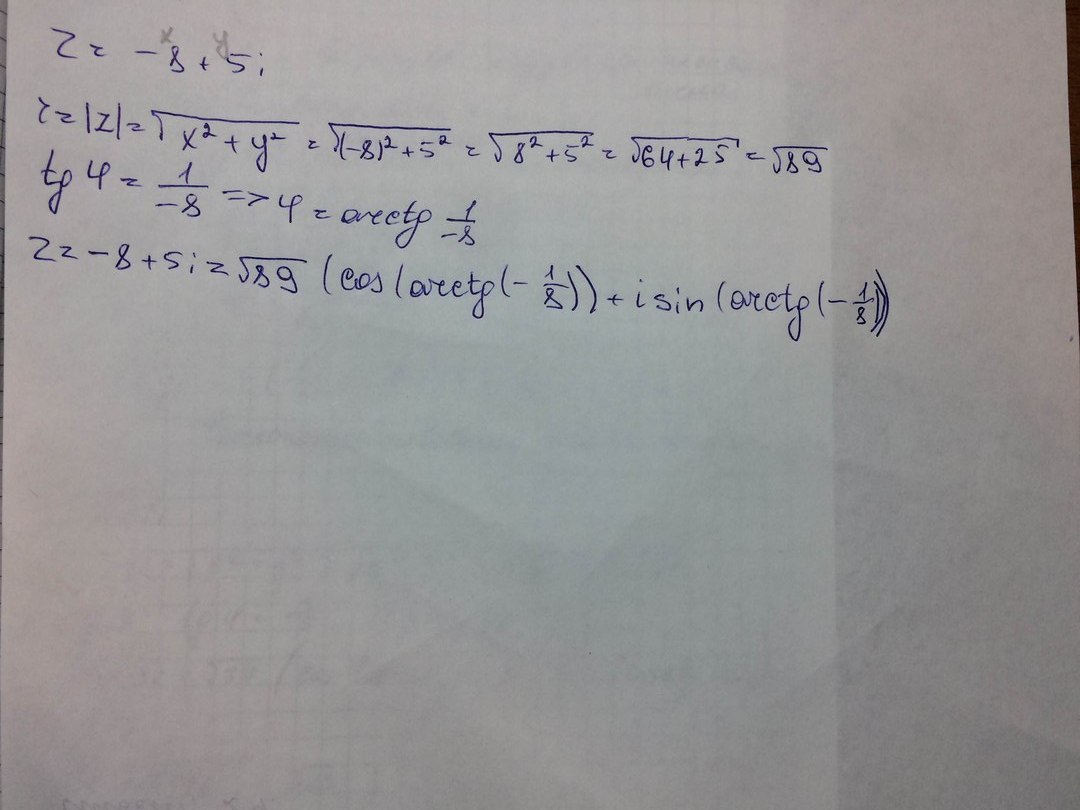 x y
z = -8 + 5i
r = |z| = √(x² + y²) = √((-8)² + 5²) = √(8² + 5²) = √(64 + 25) = √89
tg φ = 1/-8 => φ = arctg 1/-8
z = -8 + 5i = √89 (cos(arctg(-1/8)) + i sin(arctg(-1/8)))